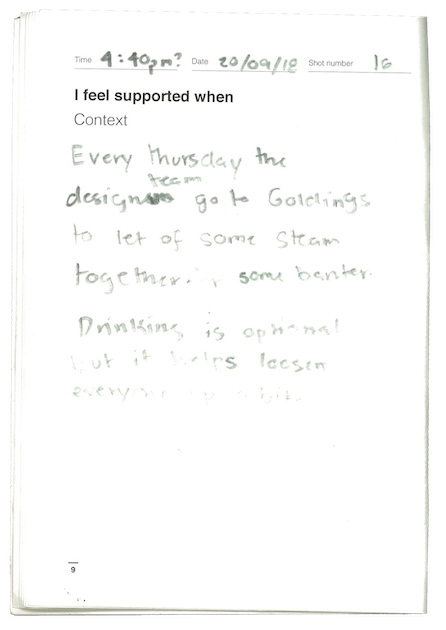 Time 4:40pm? Date 20/09/18 Shot number 16
I feel supported when
Context
Every thursday the
team
design go to Goldings
to let of some steam
together. some banter.
Drinking is optional
but it helps loosen
9